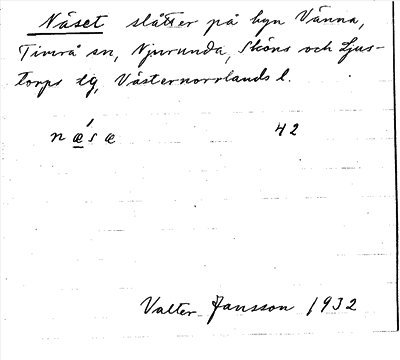 Näset slåtter på byn Vänna,
Timrå sn, Njurunda, Sköns och Ljus-
torps tg, Västernorrlands l.
næ´sæ 42
Valter Jansson 1932